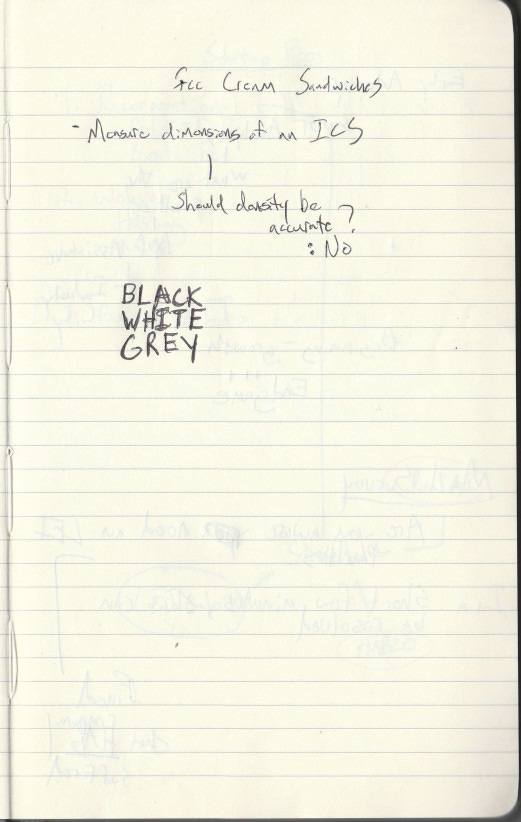 Ice Cream Sandwiches
- Measure dimensions of an ICS
Should density be
accurate ?
: No
BLACK
WHITE
GREY